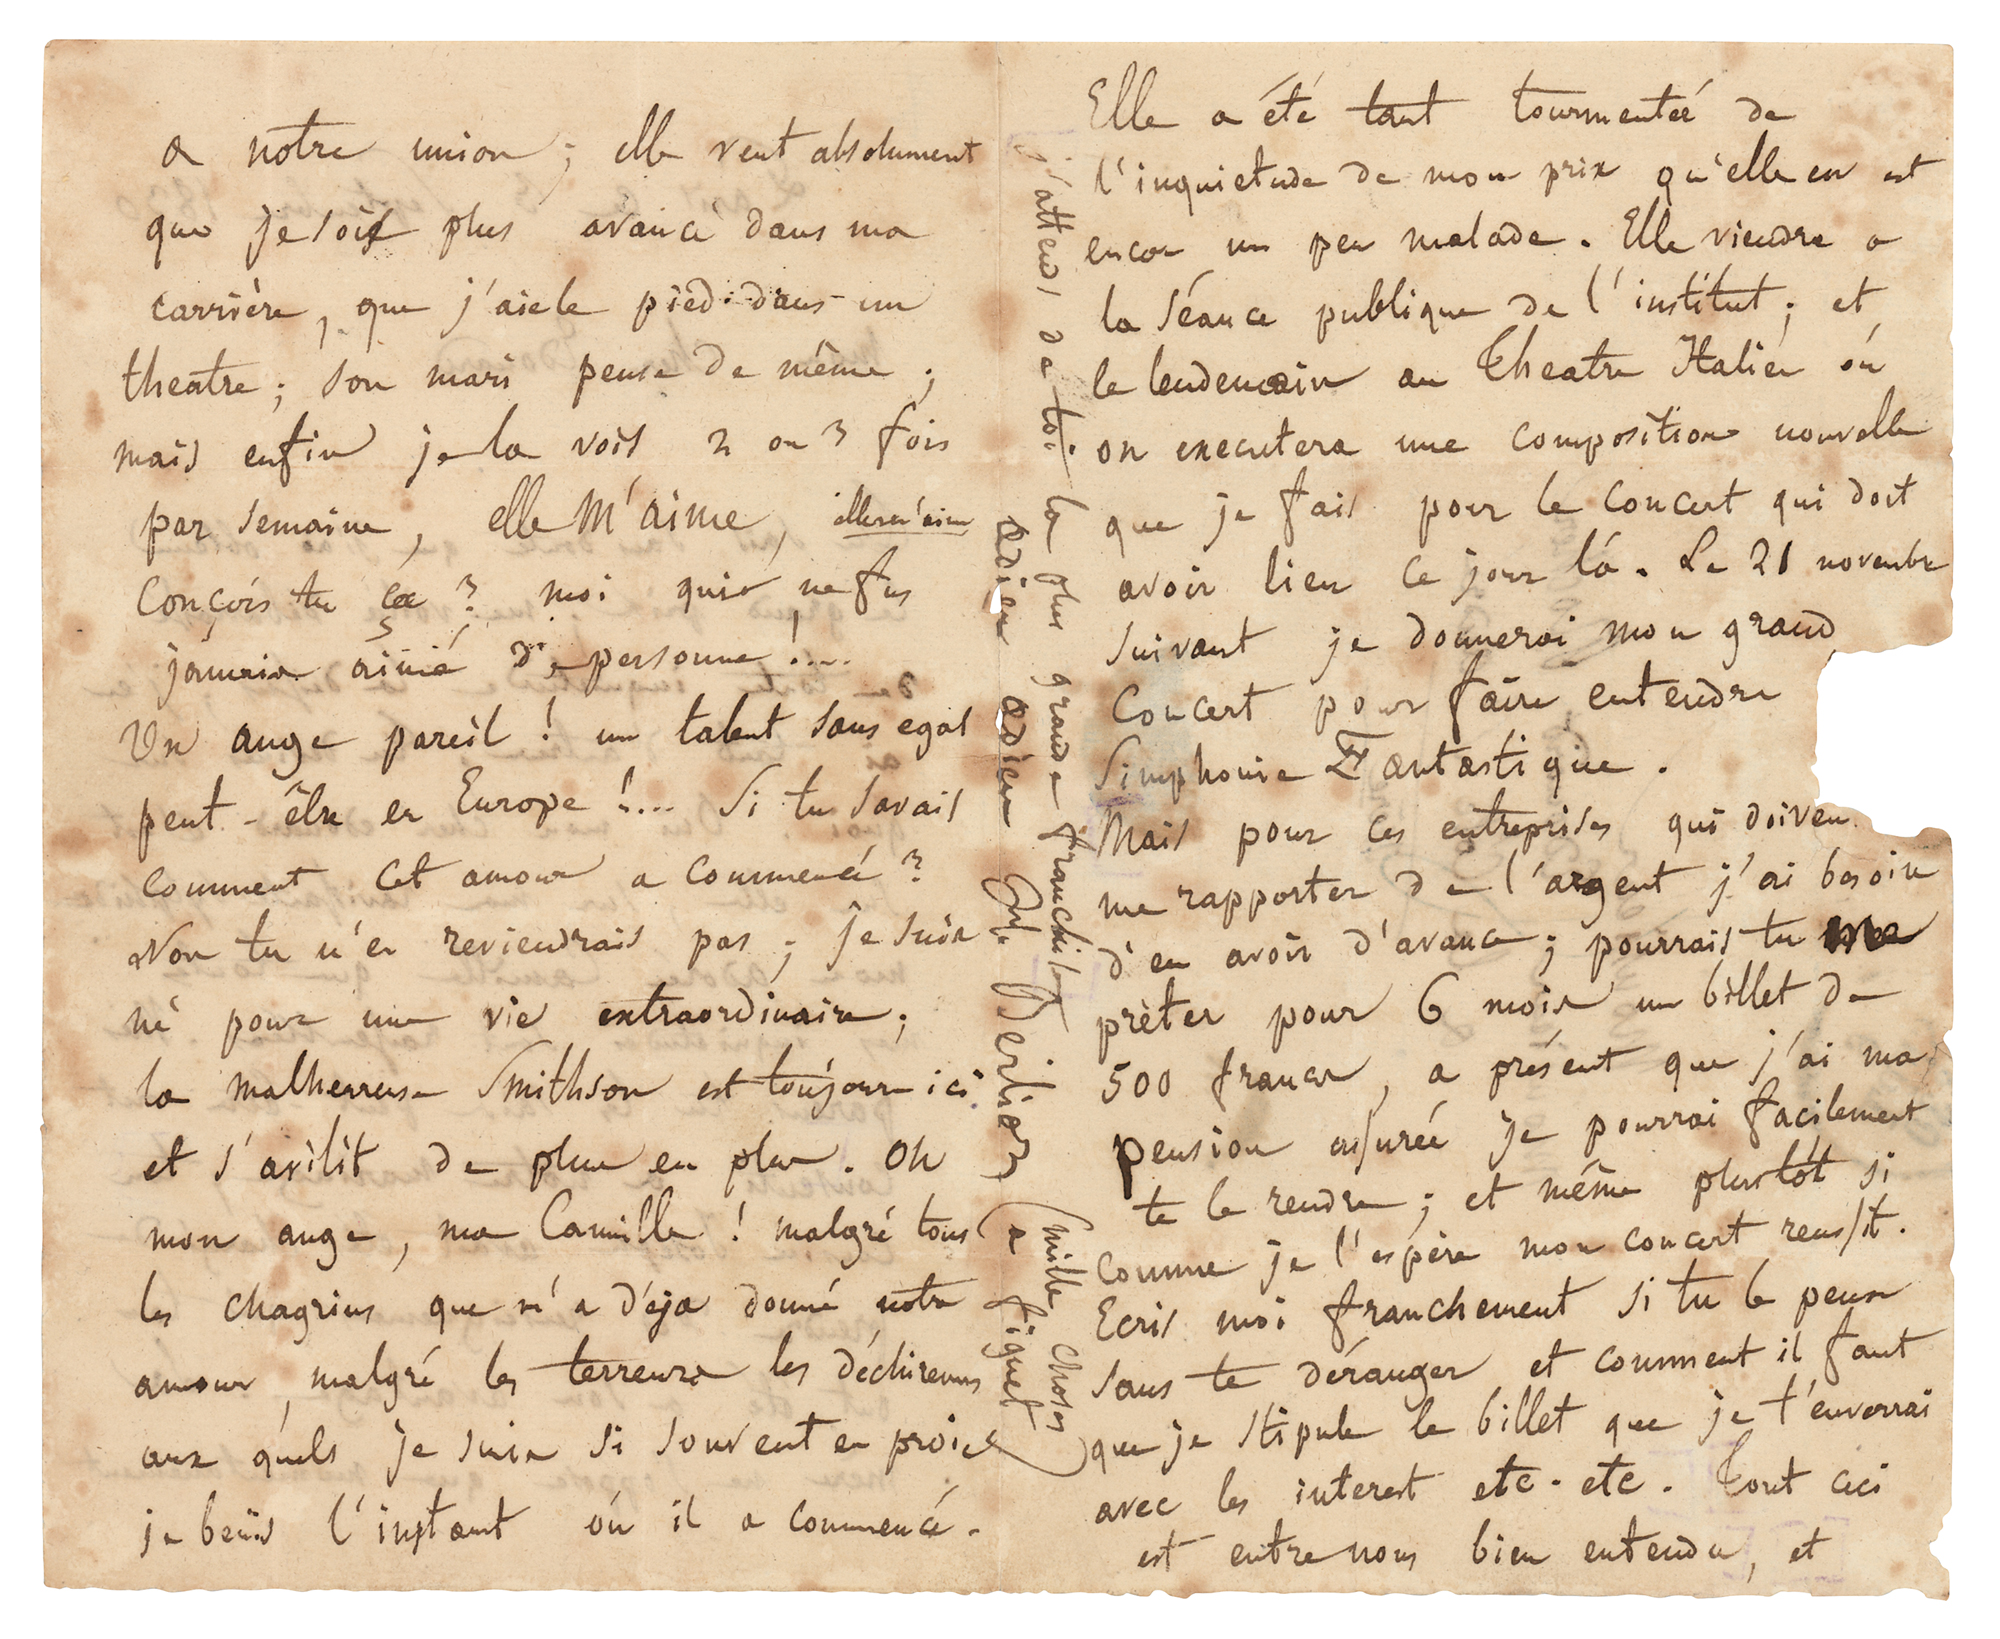 a notre union; elle veut absolument
que je sois plus avancé dans ma
carrière, que j'aie le pied dans un
theatre; son mari pense de même;
mais enfin je la vois 2 ou 3 fois
par semaine, elle M'aime, elle m'aime
Conçois tu ça? moi qui ne fus
jamais aimé de personne!....
Un ange pareil! un talent sans egal
peut-être en Europe!... Si tu savais
comment cet amour a commencé?
Non tu n'en reviendrais pas; je suis
né pour une vie extraordinaire;
la malheureuse Smithson est toujours ici
et s'avilit de plus en plus. Oh
mon ange, ma Camille! malgré tous
les chagrins que m'a déja donné notre
amour, malgré les terreurs les déchiremens
aux quels je suis si souvent en proie
je benis l'instant où il a commencé.
Elle a été tant tourmentée de
l'inquietude de mon prix qu'elle en est
encor un peu malade. Elle viendra a
la séance publique de l'institut; et
le lendemain au Theatre Italien où
on executera une composition nouvelle
que je fais pour le concert qui doit
avoir lieu ce jour là. Le 21 novembre
suivant je donnerai mon grand
Concert pour faire entendre
Simphonie Fantastique.
Mais pour ces entreprises qui doiven
me rapporter de l'argent j'ai besoin
d'en avoir d'avance; pourrais tu me
prêter pour 6 mois un billet de
500 francs, a présent que j'ai ma
pension assurée je pourrai facilement
te le rendre; et même plustôt si
comme je l'espère mon concert reussit.
Ecris moi franchement si tu le peux
sans te déranger et comment il faut
que je stipule le billet que je t'enverrai
avec les interest etc. etc. Tout ceci
est entre nous bien entendu, et
j'attends de toi la plus grande franchise
adieu adieu H. Berlioz (mille choses
a figuet)